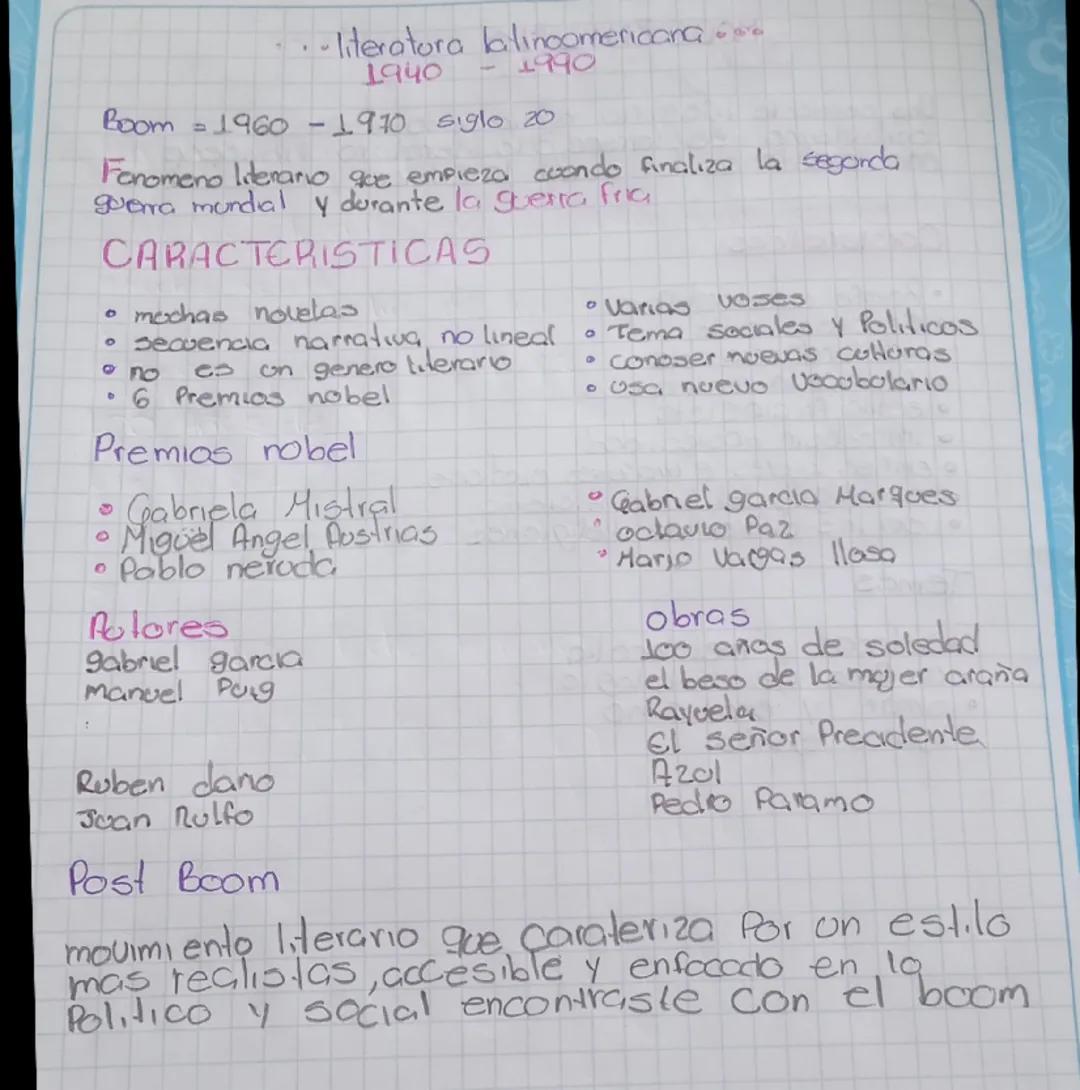 literatura latinoamericana
1940 - 1990
Boom = 1960 - 1970 siglo 20
Fenomeno literario que empieza cuando finaliza la segunda
guerra mundial y durante la guerra fria
CARACTERISTICAS
• muchas novelas
• secuencia narrativa no lineal
• no es un genero literario
• 6 Premios nobel
• Varias voses
• Tema sociales y Politicos
• conoser nuevas culturas
• Usa nuevo Vocabolario
Premios nobel
• Gabriela Mistral
• Miguel Angel Austrias
• Pablo neruda
• Gabriel garcia Marques
• octavio Paz
• Mario Vargas llosa
Autores
gabriel garcia
manuel Puig
:
Ruben dario
Juan Rulfo
obras
100 años de soledad
el beso de la mujer araña
Rayuela
El señor Precidente
Azul
Pedro Paramo
Post Boom
movimiento literario que carateriza Por un estilo
mas realistas, accesible y enfocado en lo
Politico y social encontraste con el boom